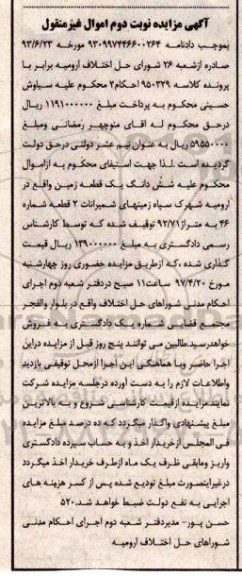 آگهی مزایده نوبت دوم اموال غیزمنقول
بموجب دادنامه ۹۳۰۹۹۷۴۴۶۶۰۰۲۶۴ مورخه ۹۳/۶/۲۳
صادره ازشعبه ۲۶ شورای حل اختلاف ارومیه برابر با
پرونده کلاسه ۹۵۰۳۲۹ احکام۲ محکوم علیه سیاوش
حسینی محکوم به پرداخت مبلغ ۱۱۹۱۰۰۰۰۰۰ ریال
درحق محکوم له اقای منوچهر رمضانی ومبلغ
۵۹۵۵۰۰۰۰ ریال به عنوان نیم عشر دولتی درحق دولت
گردیده است .لذا جهت استیفای محکوم به ازاموال
محکوم علیه شش دانگ یک قطعه زمین واقع در
ارومیه شهرک سپاه زمینهای شمیرانات ۲ قطعه شماره
۴۶ به متراژ ۹۲/۷۱ توقیف شده که توسط کارشناس
رسمی دادگستری به مبلغ ۱۳۹۰۰۰۰۰۰ ریال قیمت
گذاری شده ،که ازطریق مزایده حضوری روز چهارشنبه
مورخ ۹۷/۴/۲۰ ساعت۱۱ صبح دردفتر شعبه دوم اجرای
احکام مدنی شوراهای حل اختلاف واقع در بلوار والفجر
مجتمع قضایی شماره یک دادگستری به فروش
خواهدرسید.طالبین می توانند پنج روز قبل از مزایده دراین
اجرا حاضر وبا هماهنگی این اجرا ازمحل توقیفی بازدید
واطلاعات لازم را به دست آورده درجلسه مزایده شرکت
نمایند.مزایده ازقیمت کارشناسی شروع و به بالاترین
مبلغ پیشنهادی واگذار میگردد که ده درصد مبلغ مزایده
فی المجلس ازخریدار اخذ و به حساب سپرده دادگستری
واریز ومابقی ظرف یک ماه ازطرف خریدار اخذ میگردد
درغیراینصورت مبلغ تودیع شده پس از کسر هزینه های
اجرایی به نفع دولت ضبط خواهد شد.۵۲۰
حسن پور- مدیردفتر شعبه دوم اجرای احکام مدنی
شوراهای حل اختلاف ارومیه